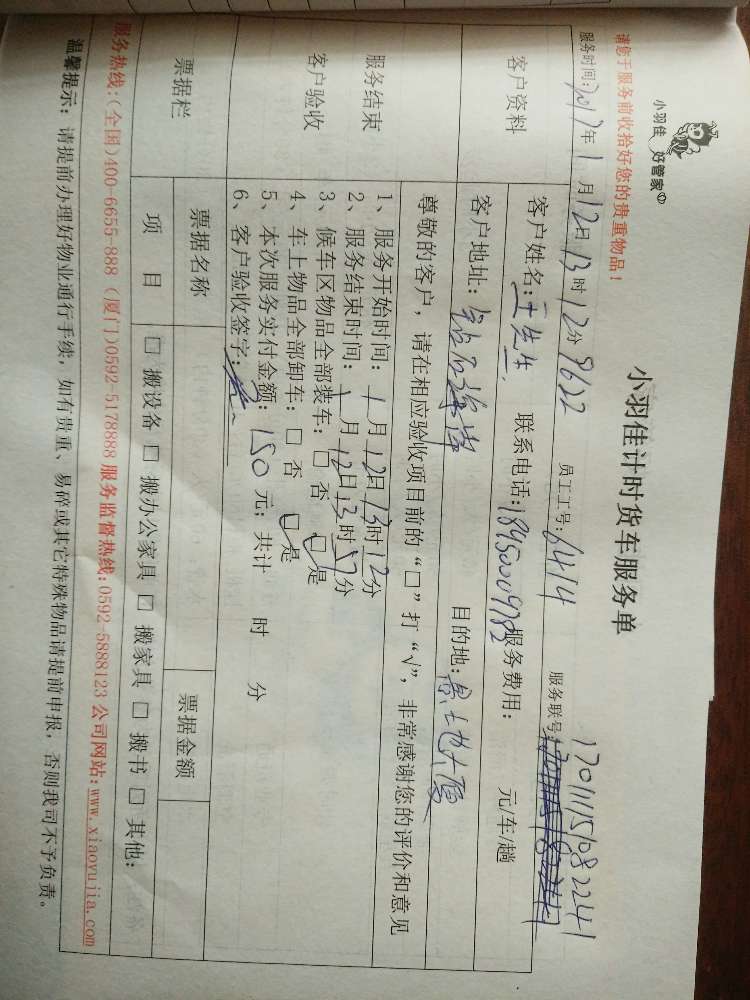 小羽佳 好管家
小羽佳计时货车服务单
请您于服务前收拾好您的贵重物品！
17011115082241
服务时间：2017年1月12日13时12分 9622 员工工号：6414 服务联号：
客户资料
客户姓名：王先生 联系电话：18950009782 服务费用： 元/车/趟
客户地址： 目的地：
尊敬的客户，请在相应验收项目前的“□”打“√”，非常感谢您的评价和意见
服务结束
客户验收
1、服务开始时间：1月12日13时12分
2、服务结束时间：1月12日13时57分
3、候车区物品全部装车：□ 否 □是
4、车上物品全部卸车：□ 否 □是
5、本次服务实付金额：150元；共计 时 分
6、客户验收签字：
票据栏
票据名称 票据金额
项 目 □ 搬设备 □ 搬办公家具 □ 搬家具 □ 搬书 □ 其他：
服务热线：(全国)400-6655-888 (厦门)0592-5178888 服务监督热线：0592-5888123 公司网站：www.xiaoyujia.com
温馨提示：请提前办理好物业通行手续，如有贵重、易碎或其它特殊物品请提前申报，否则我司不予负责。